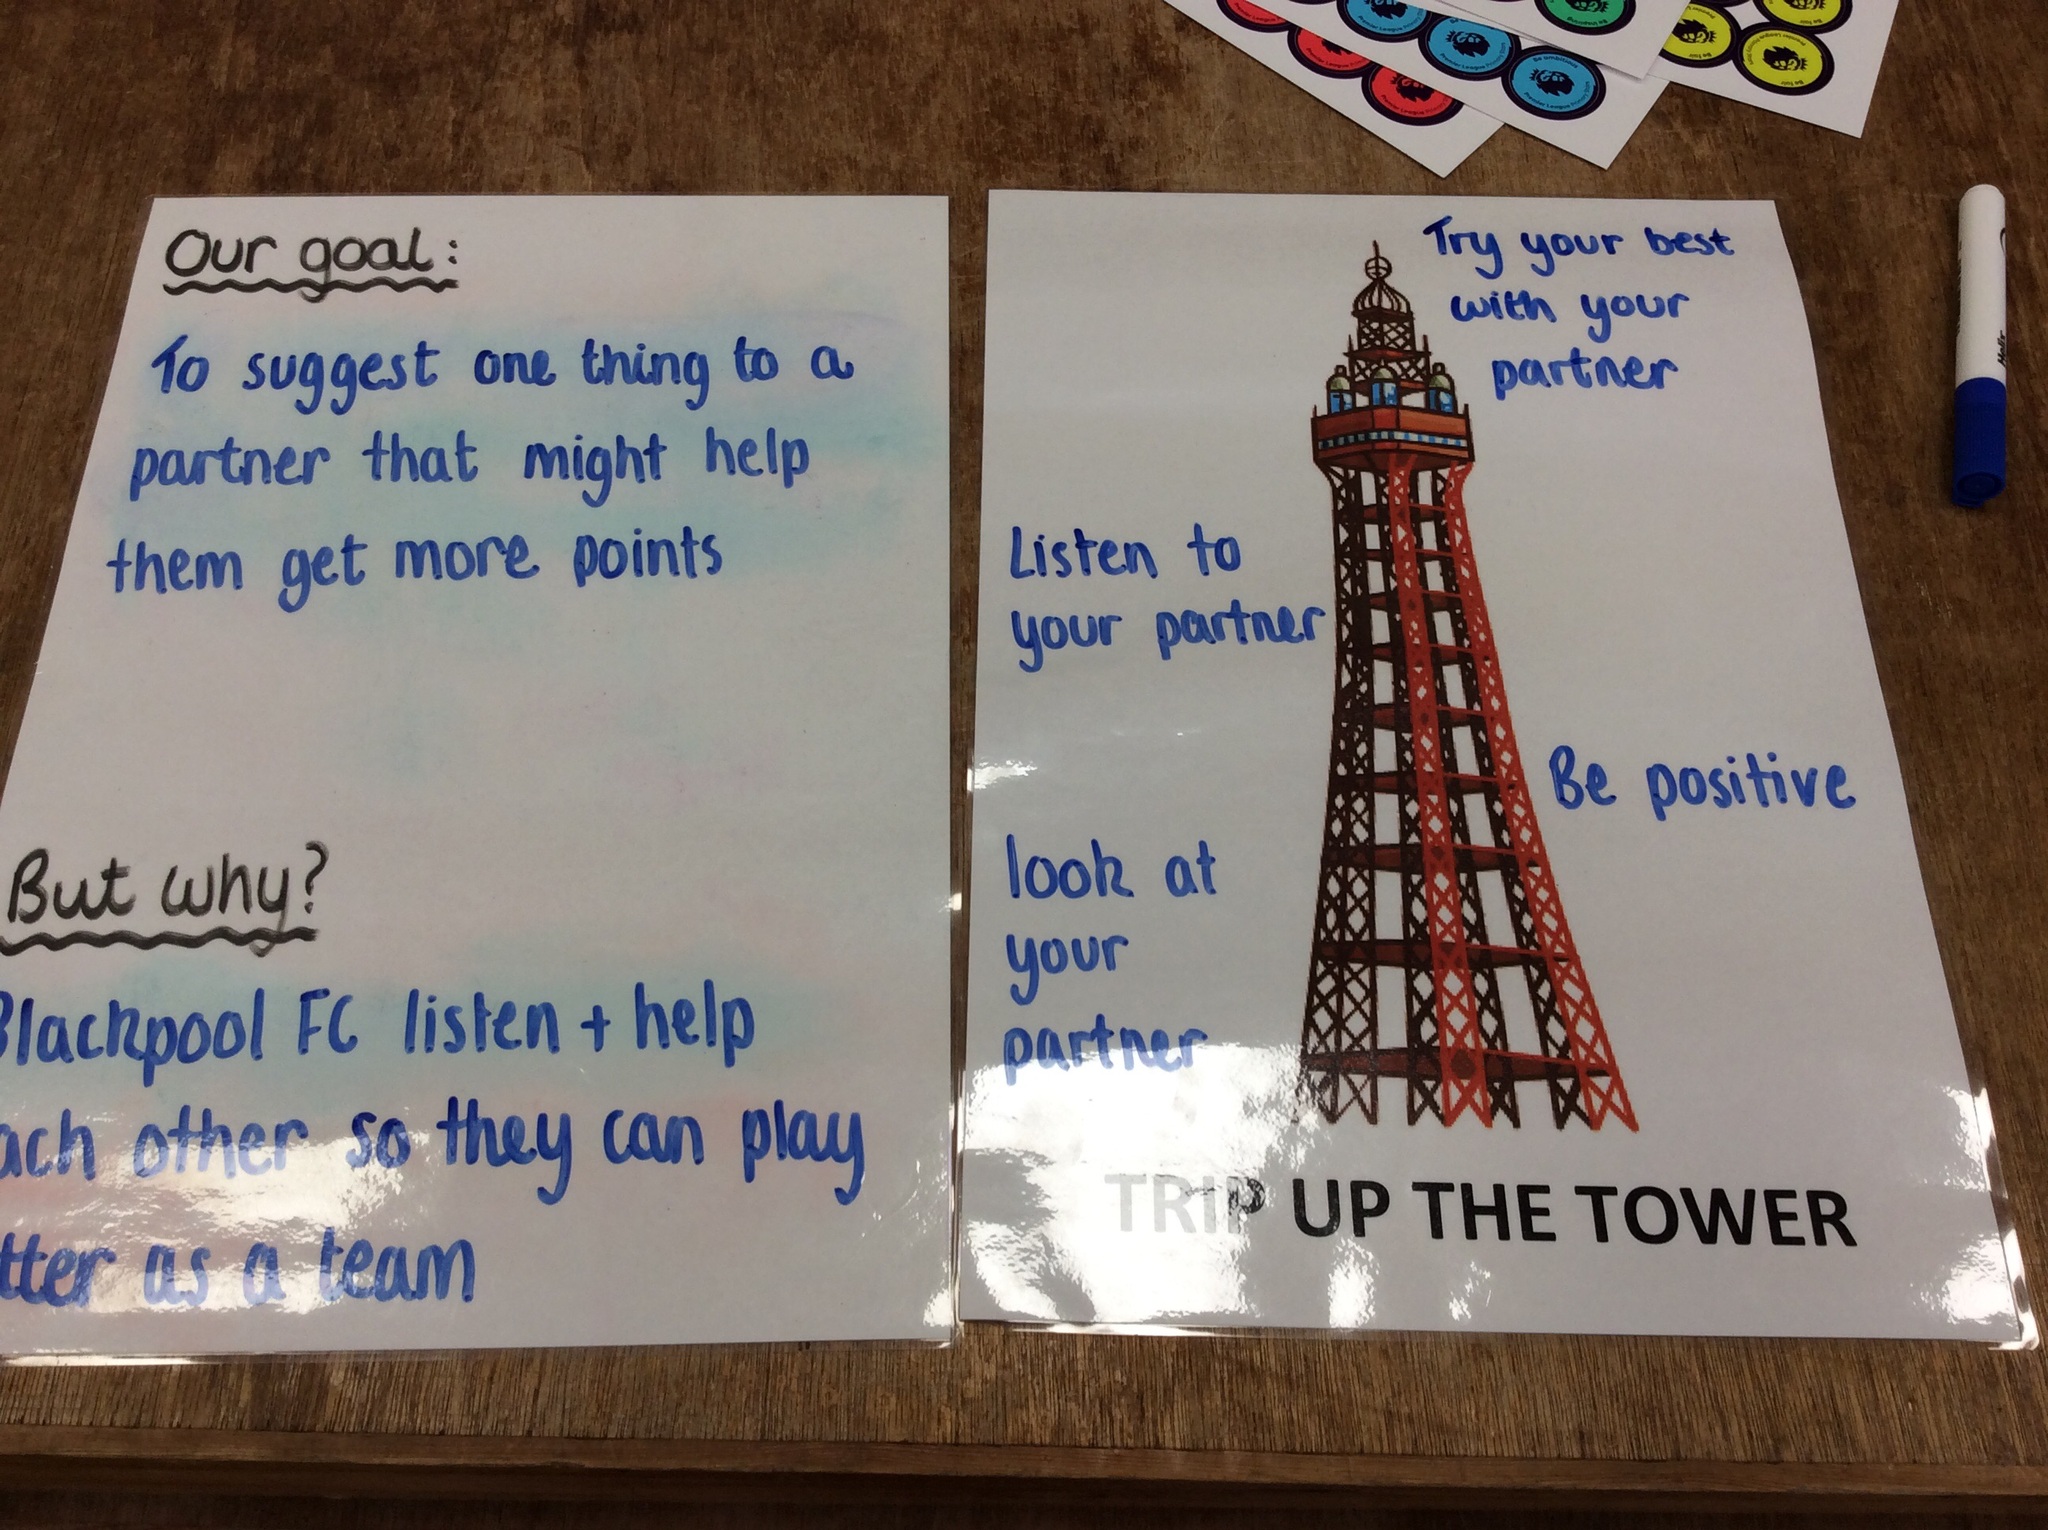 Our goal:
To suggest one thing to a
partner that might help
them get more points
But why?
Blackpool FC listen + help
each other so they can play
as a team
Try your best
with your
partner
Listen to
your partner
Be positive
look at
your
partner
TRIP UP THE TOWER
Be ambitious
Premier League Primary Stars
Be inspiring
Be fair